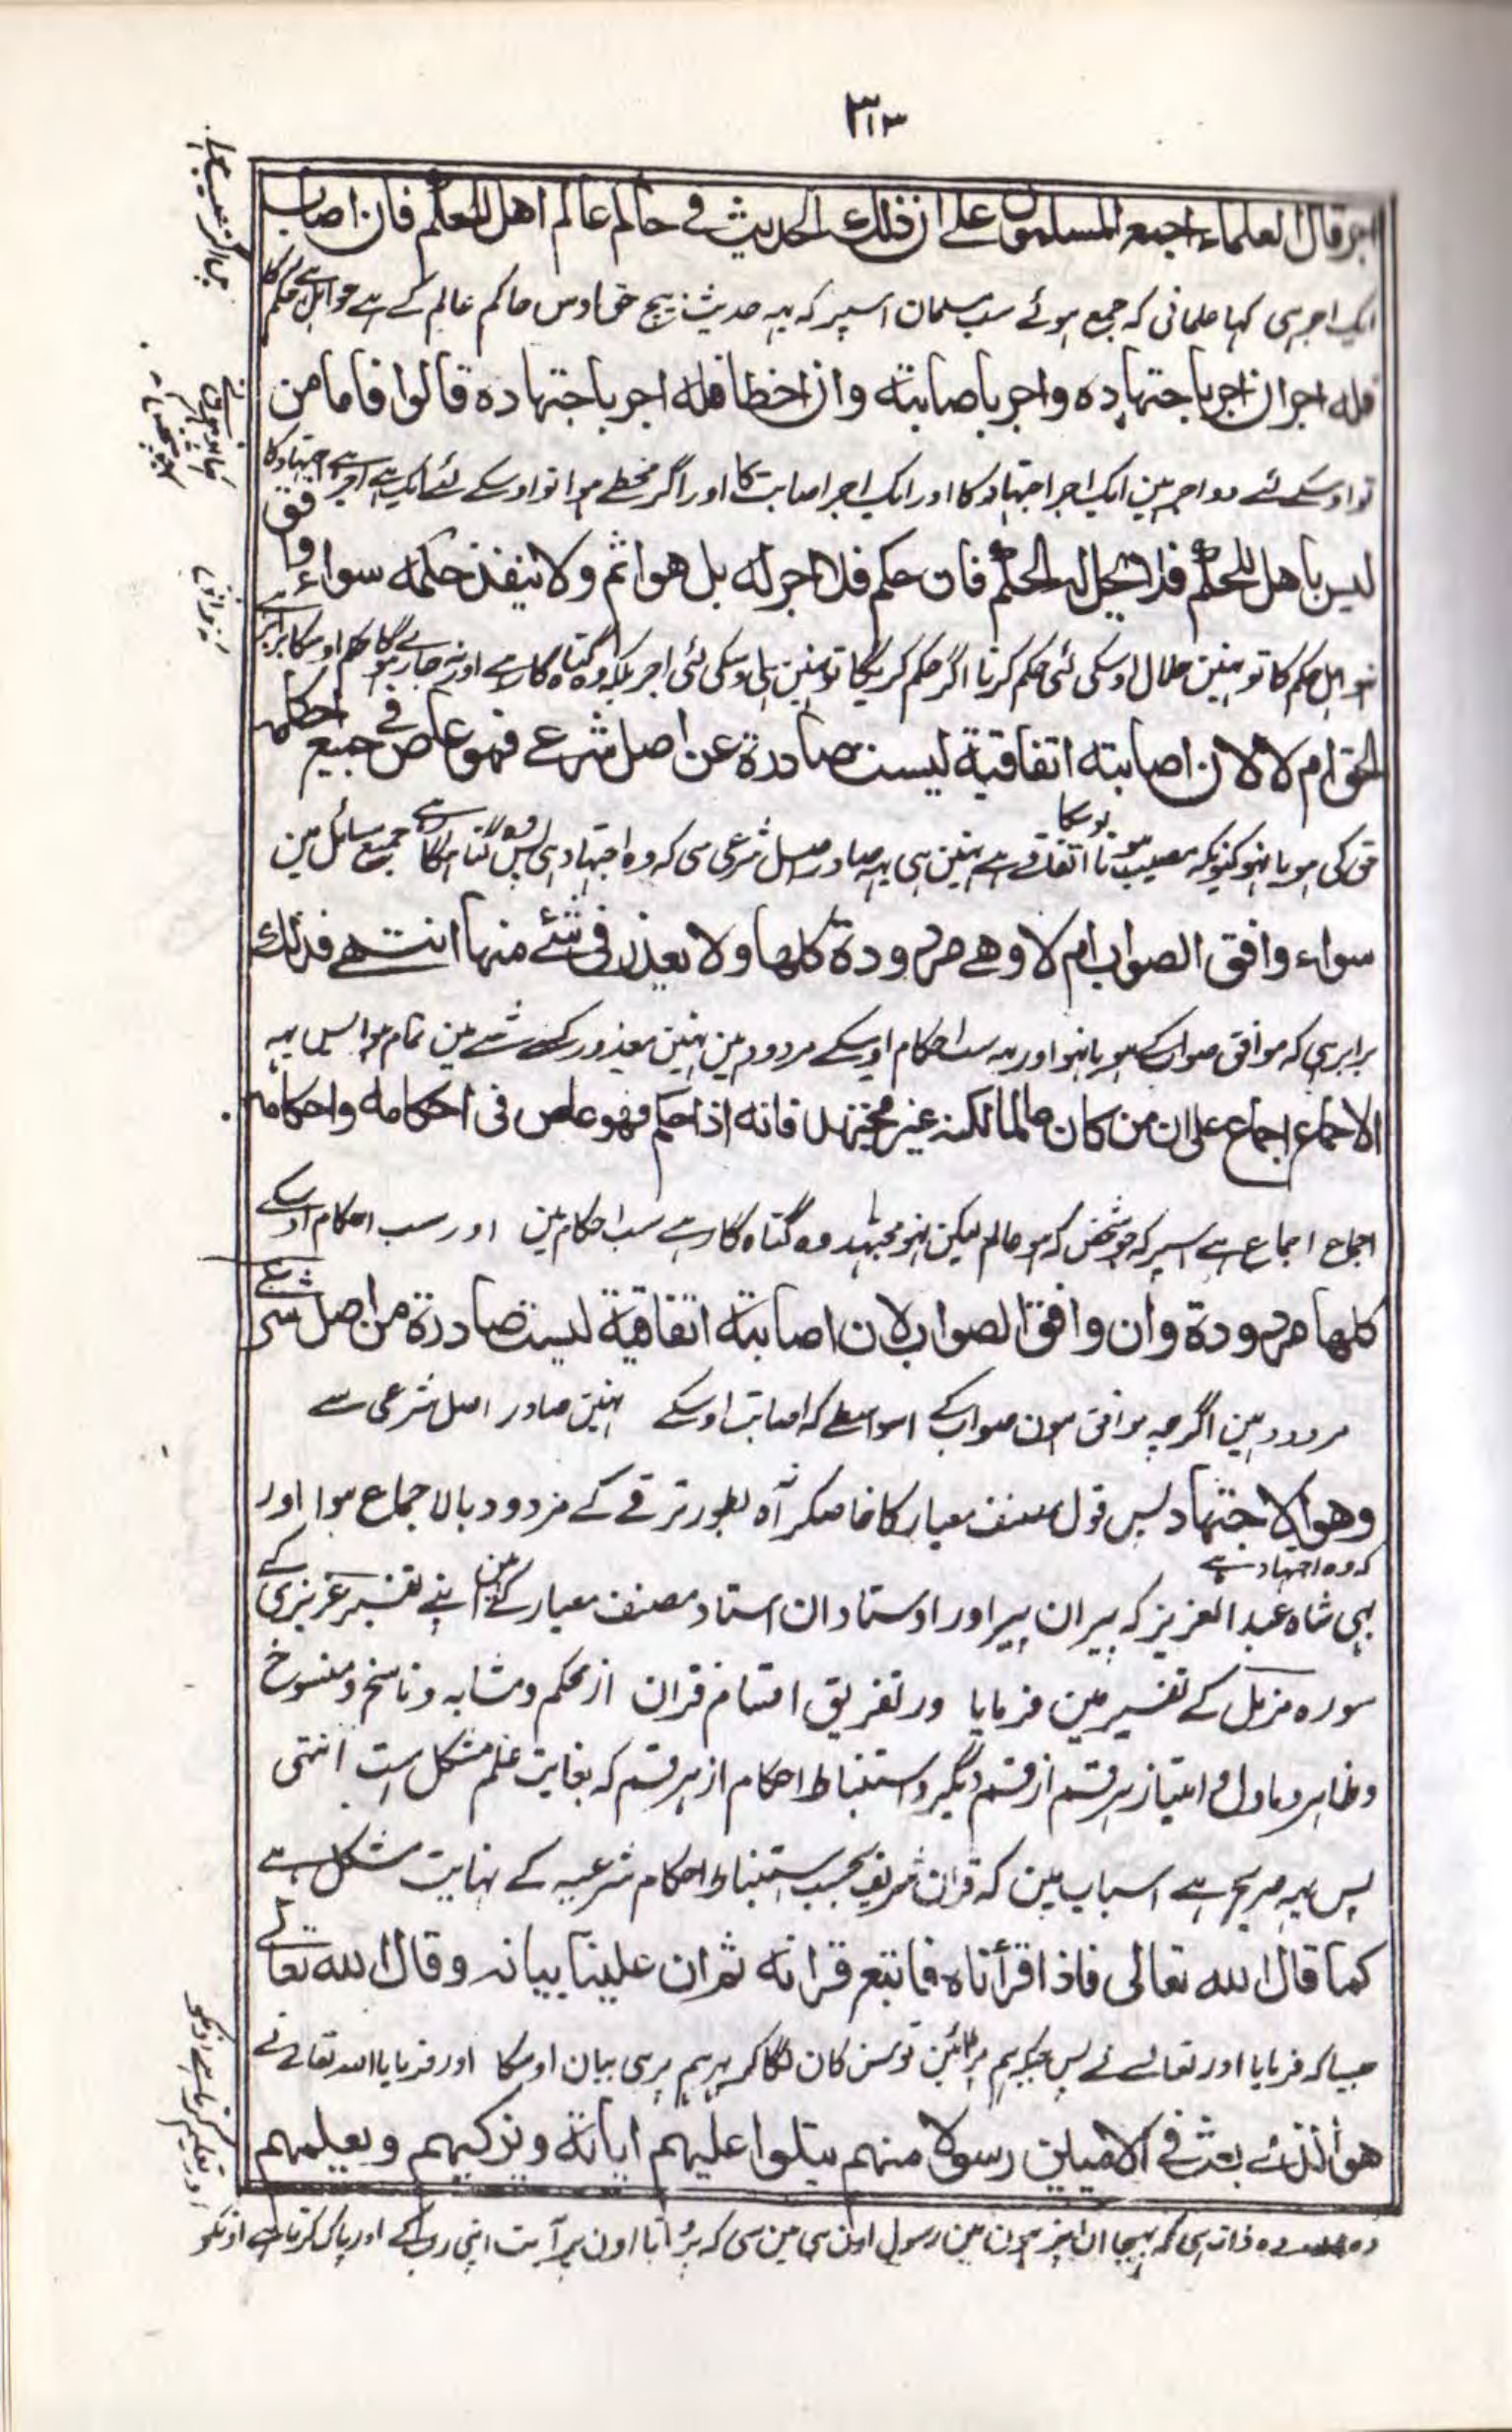 ٣١٣
اجر قال العلماء اجمع المسلمون على ان ذلك الحديث في حاكم عالم اهل للحكم فان اصاب
ایک اجر ہی کہا علمانی کہ جمع ہوئے سب مسلمان اسپر کہ یہہ حدیث بیچ حق اوس حاکم عالم کے ہے جو اہل ہے حکم کا
فله اجران اجر باجتهاده واجر باصابته وان اخطا فله اجر باجتهاده قالوا فاما من
تو اوسکے لئے دو اجر ہین ایک اجر اجتہاد کا اور ایک اجر اصابت کا اور اگر مخطے ہوا تو اوسکے لئے ایک ہے اجر ہے اجتہاد کا
ليس باهل للحكم فلا يحل له الحكم فان حكم فلا اجر له بل هو اثم ولا ينفذ حكمه سواء وافق
اہل حکم کا تو ہنین حلال اوسکی لئی حکم کرنا اگر حکم کریگا تو ہنین ہی اوسکی لئی اجر بلکہ وہ گناہ گار ہے اور نہ جاری ہوگا حکم اوسکا برابر ہے
الحق ام لا لان اصابته اتفاقية ليست صادرة عن اصل شرعي فهو عاص في جميع احكامه
حق کی ہو یا نہو کیونکہ مصیب ہونا اوسکا اتفاقے ہے ہنین ہی یہہ صادر اصل شرعی سی کہ وہ اجتہاد ہی پس وہ گناہگار ہے جمیع مسائل مین
سواء وافق الصواب ام لا وهي مردودة كلها ولا يعذر في شئ منها انتهى فذلك
برابر ہی کہ موافق صواب کے ہو یا نہو اور یہہ سب احکام اوسکے مردود ہین ہنین معذور کسے شے مین تمام ہوا پس یہہ
الاجماع اجماع على ان من كان عالما لكنه غير مجتهد فانه اذا حكم فهو عاص في احكامه واحكامه
اجماع اجماع ہے اسپر کہ جو شخص کہ ہو عالم لیکن نہو مجتہد وہ گناہ گار ہے سب احکام مین اور سب احکام اوسکے
كلها مردودة وان وافق الصواب لان اصابته اتفاقية ليست صادرة من اصل شرعي
مردود ہین اگرچہ موافق ہون صواب کے اسواسطے کہ اصابت اوسکے ہنین صادر اصل شرعی سے
وهو الاجتهاد پس قول مصنف معیار کا خاصکر آہ بطور ترقے کے مردود بالاجماع ہوا اور
کہ وہ اجتہاد ہے
بہی شاہ عبد العزیز کہ پیران پیر اور اوستادان استاد مصنف معیار کے ہین اپنے تفسیر عزیزی کے
سورہ مزمل کے تفسیر مین فرمایا ور تفریق اقسام قران از محکم و متشابہ و ناسخ و منسوخ
و ظاہر و ماول و امتیاز ہر قسم از قسم دیگر و استنباط احکام از ہر قسم کہ بغایت علم مشکل است انتہی
پس یہہ صریح ہے اسباب مین کہ قران شریف بحسب استنباط احکام شرعیہ کے نہایت مشکل ہے
كما قال الله تعالى فاذا قرأناه فاتبع قرانه ثم ان علينا بيانه وقال الله تعالى
جیسا کہ فرمایا اور تعالے نے پس جبکہ ہم پڑہین تو سن کان لگا کر پہر ہم پر ہی بیان اوسکا اور فرمایا اللہ تعالے نے
هو الذي بعث في الاميين رسولا منهم يتلوا عليهم اياته ويزكيهم ويعلمهم
وہ ذات ہی کہ بہیجا ان پڑہون مین رسول اون ہی مین سی کہ پڑہتا اون پر آیت اپنی رب کے اور پاک کرتا ہے اونکو
اور تعلیم کرتا ہے اونکو